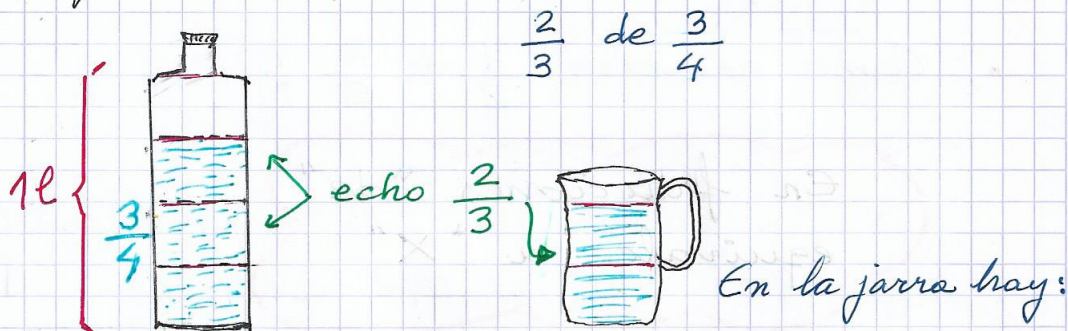 2/3 de 3/4
1l
3/4
echo 2/3
En la jarra hay: